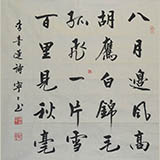 八月邊風高
胡鷹白錦毛
孤飛一片雪
百里見秋毫
李青蓮詩